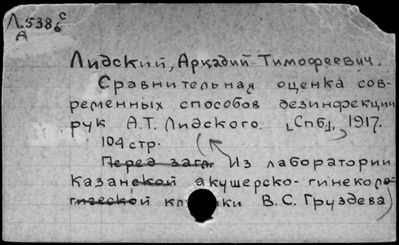 Л.538б с
А
Лидский, Аркадий Тимофеевич.
Сравнительная оценка сов-
ременных способов дезинфекции
рук А.Т. Лидского. [Спб], 1917.
104 стр.
Перед загл. Из лаборатории
Казанской акушерско-гинеколо-
гической клиники В.С. Груздева)